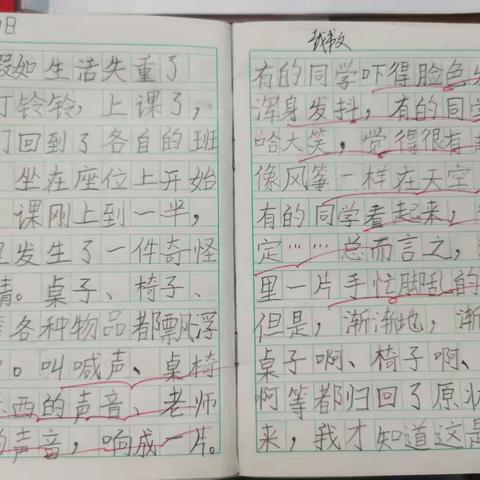 日
假如生活失重了
丁铃铃,上课了,
们回到了各自的班
坐在座位上开始
课刚上到一半,
里发生了一件奇怪
情。桌子、椅子、
各种物品都飘浮
。叫喊声、桌椅
东西的声音、老师
的声音,响成一片。
有的同学吓得脸色
浑身发抖,有的同学
哈大笑,觉得很有
像风筝一样在天空
有的同学看起来,
定……总而言之,
里一片手忙脚乱的
但是,渐渐地,渐
桌子啊、椅子啊、
啊等都归回了原状
来,我才知道这是